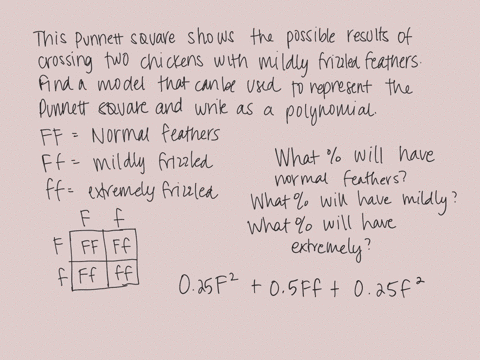 This Punnett square shows the possible results of
crossing two chickens with mildly frizzled feathers.
Find a model that can be used to represent the
Punnett square and write as a polynomial.
FF = Normal feathers
Ff = mildly frizzled
ff = extremely frizzled
What % will have
normal feathers?
What % will have mildly?
What % will have
extremely?
F f
F FF Ff
f Ff ff
0.25F² + 0.5Ff + 0.25f²